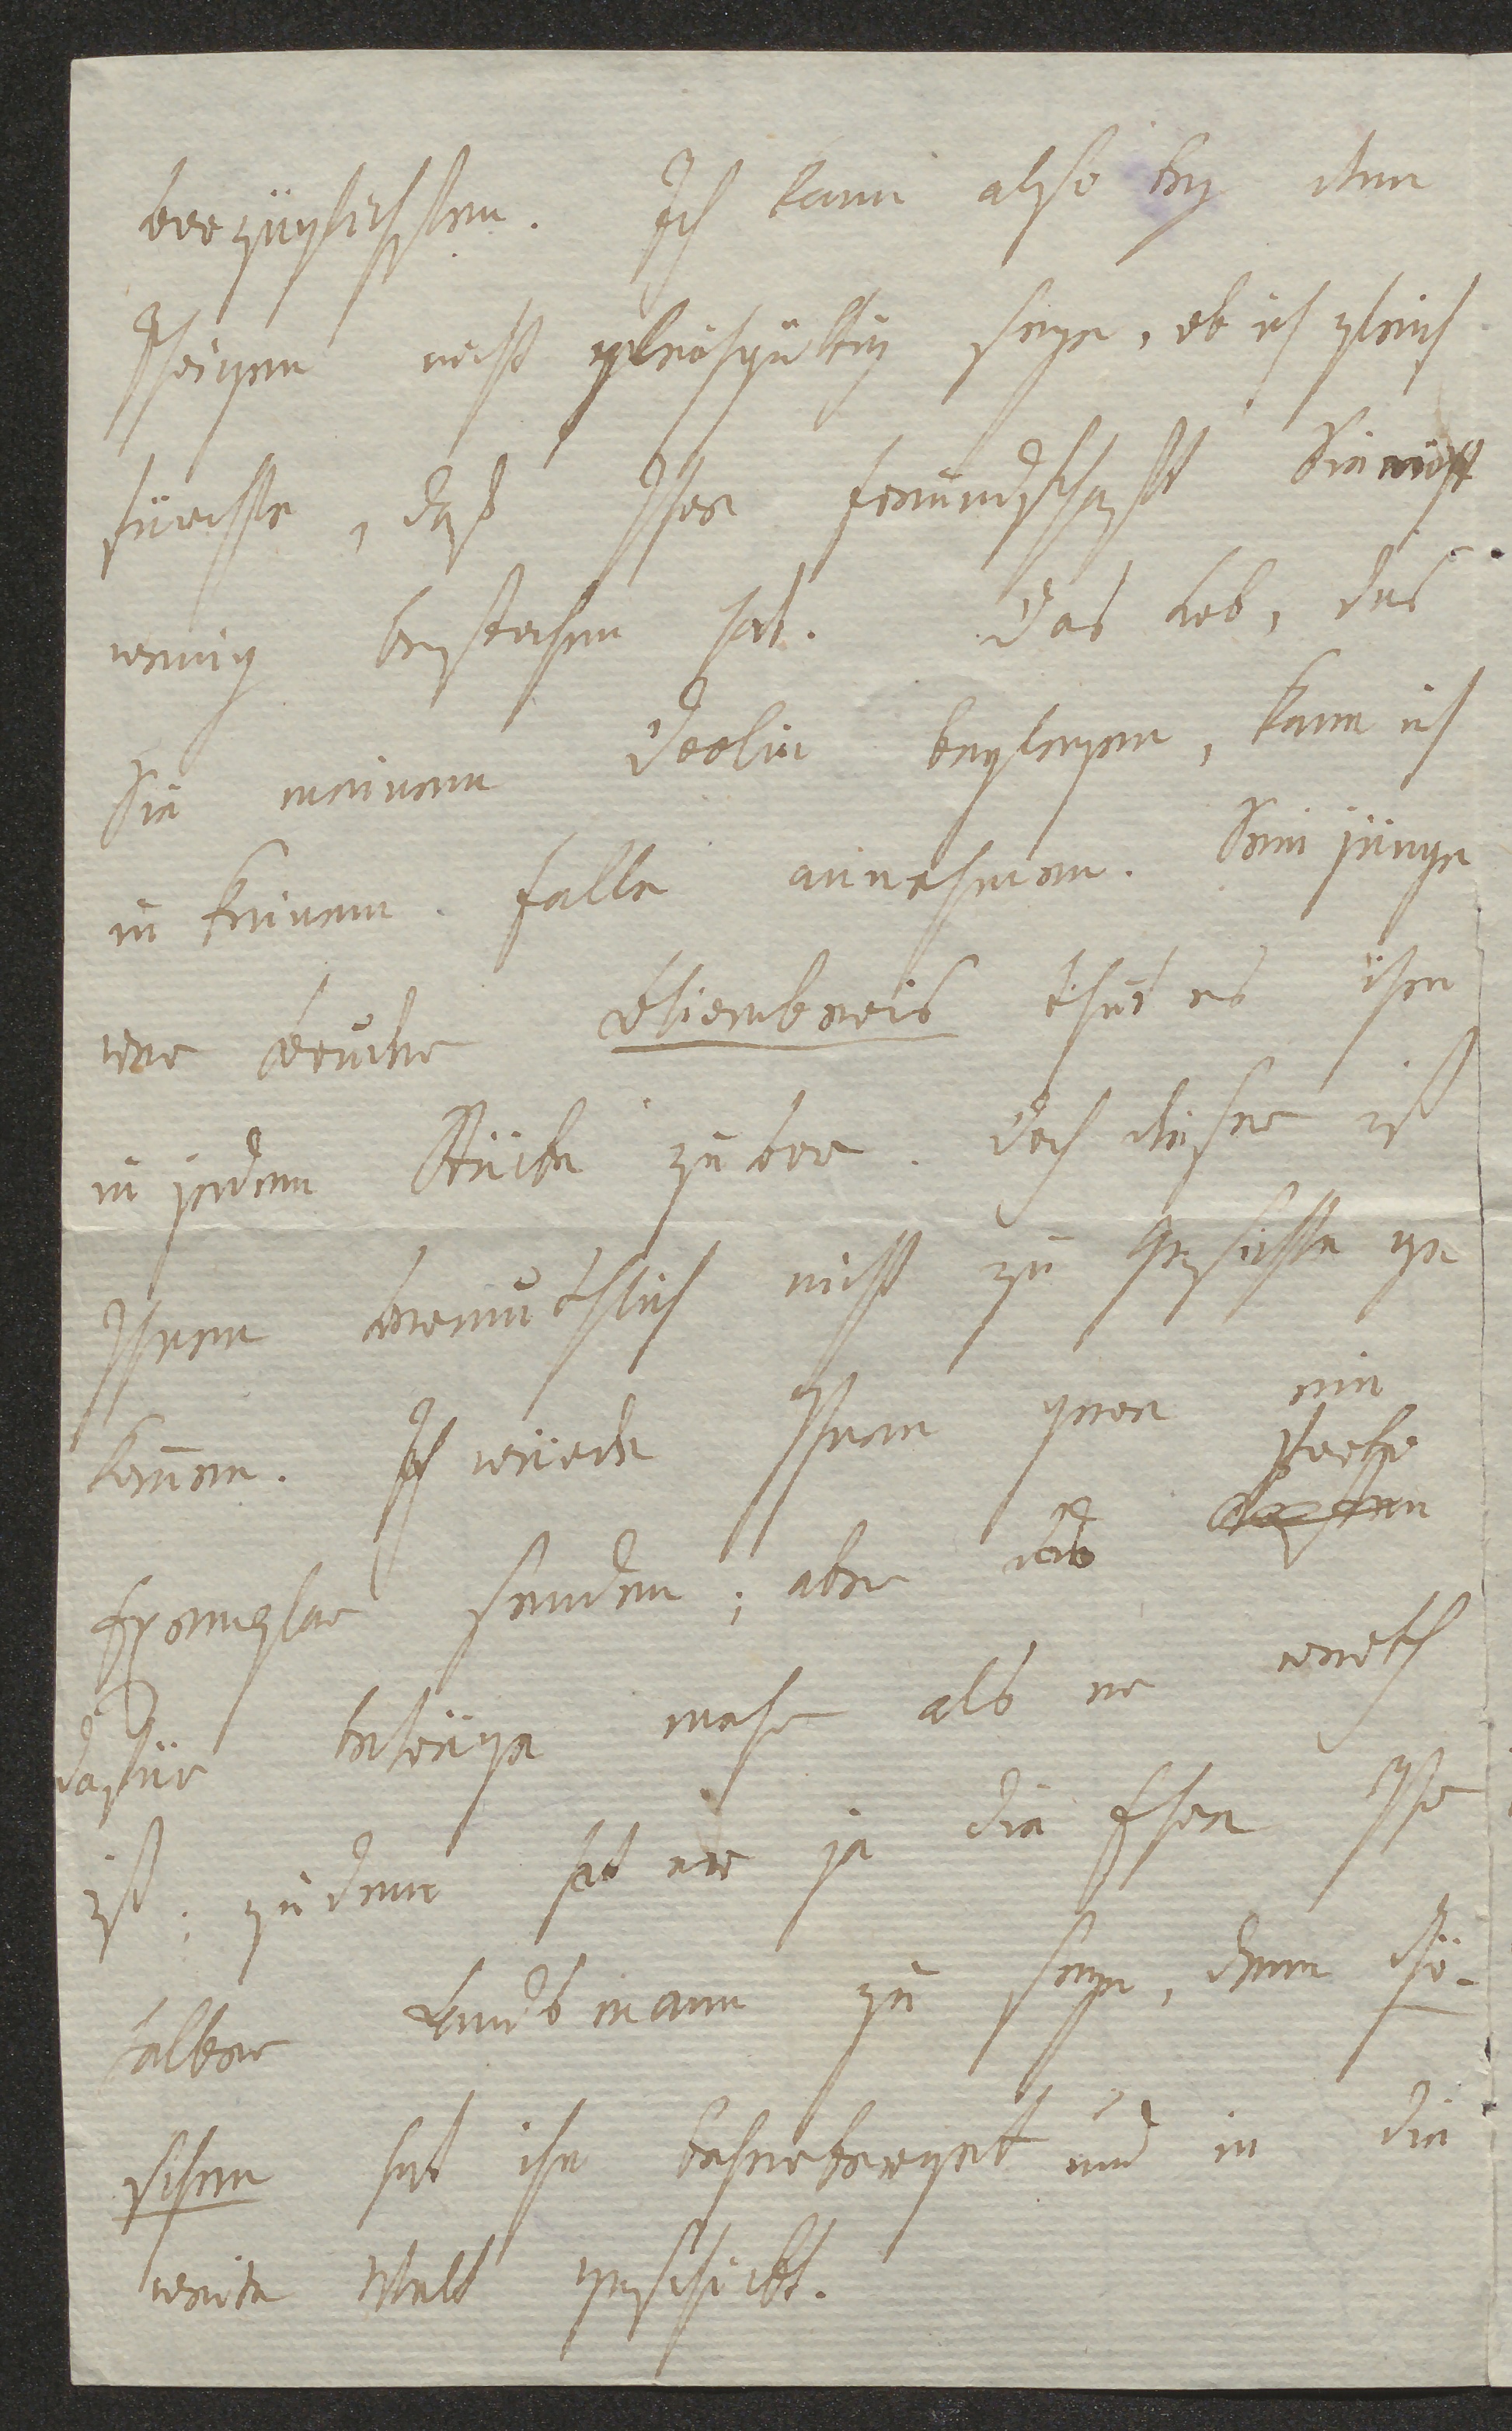 vorzüglichsten. Ich kann also bey dem
Ihrigen nicht gleichgültig seyn, ob ich gleich
fürchte, daß Ihre Freundschaft Sie nicht
wenig bestochen hat. Das Lob, das
Sie meinem Dolin beylegen, kann ich
in keinem Falle annehmen. Sein jünge
rer Bruder Eliombaris thut es ihm
in jedem Stücke zuvor. Doch dieser ist
Ihnen vermuthlich nicht zu Gesichte ge
kom̅en. Ich würde Ihnen gern ein
Exemplar senden; aber das Porto
dafür betrüge mehr als er werth
ist; zudem hat er ja die Ehre Ihr
halber Landsmann zu seyn, denn Gö-
schen hat ihn beherberget und in die
weite Welt geschickt.